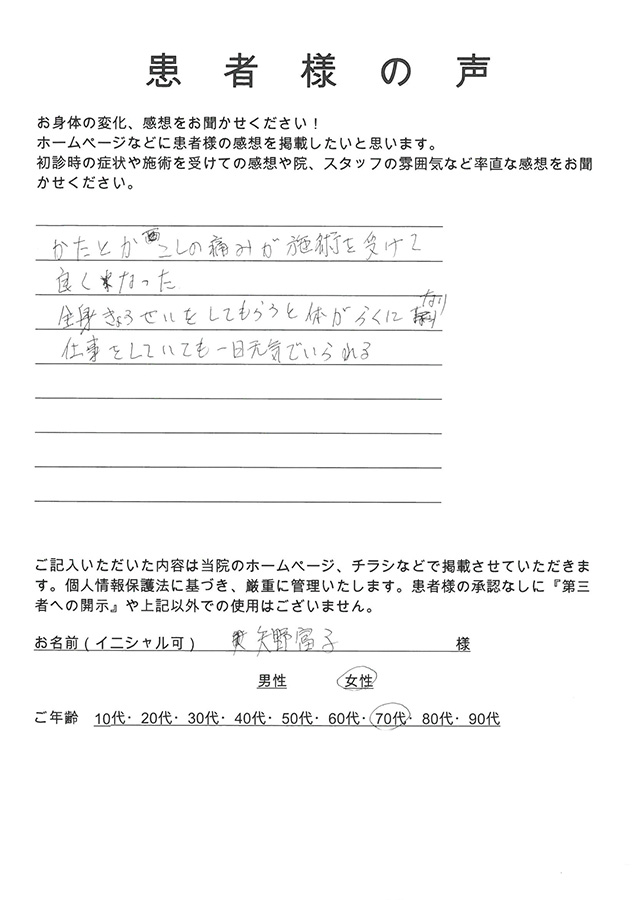 患者様の声
お身体の変化、感想をお聞かせください！
ホームページなどに患者様の感想を掲載したいと思います。
初診時の症状や施術を受けての感想や院、スタッフの雰囲気など率直な感想をお聞
かせください。
かたとか こしの痛みが施術を受けて
良くなった
全身きょうせいをしてもらうと体がらくになり
仕事をしていても一日元気でいられる
ご記入いただいた内容は当院のホームページ、チラシなどで掲載させていただきま
す。個人情報保護法に基づき、厳重に管理いたします。患者様の承認なしに『第三
者への開示』や上記以外での使用はございません。
お名前(イニシャル可) 矢野富子 様
男性 女性
ご年齢 10代・20代・30代・40代・50代・60代・70代・80代・90代